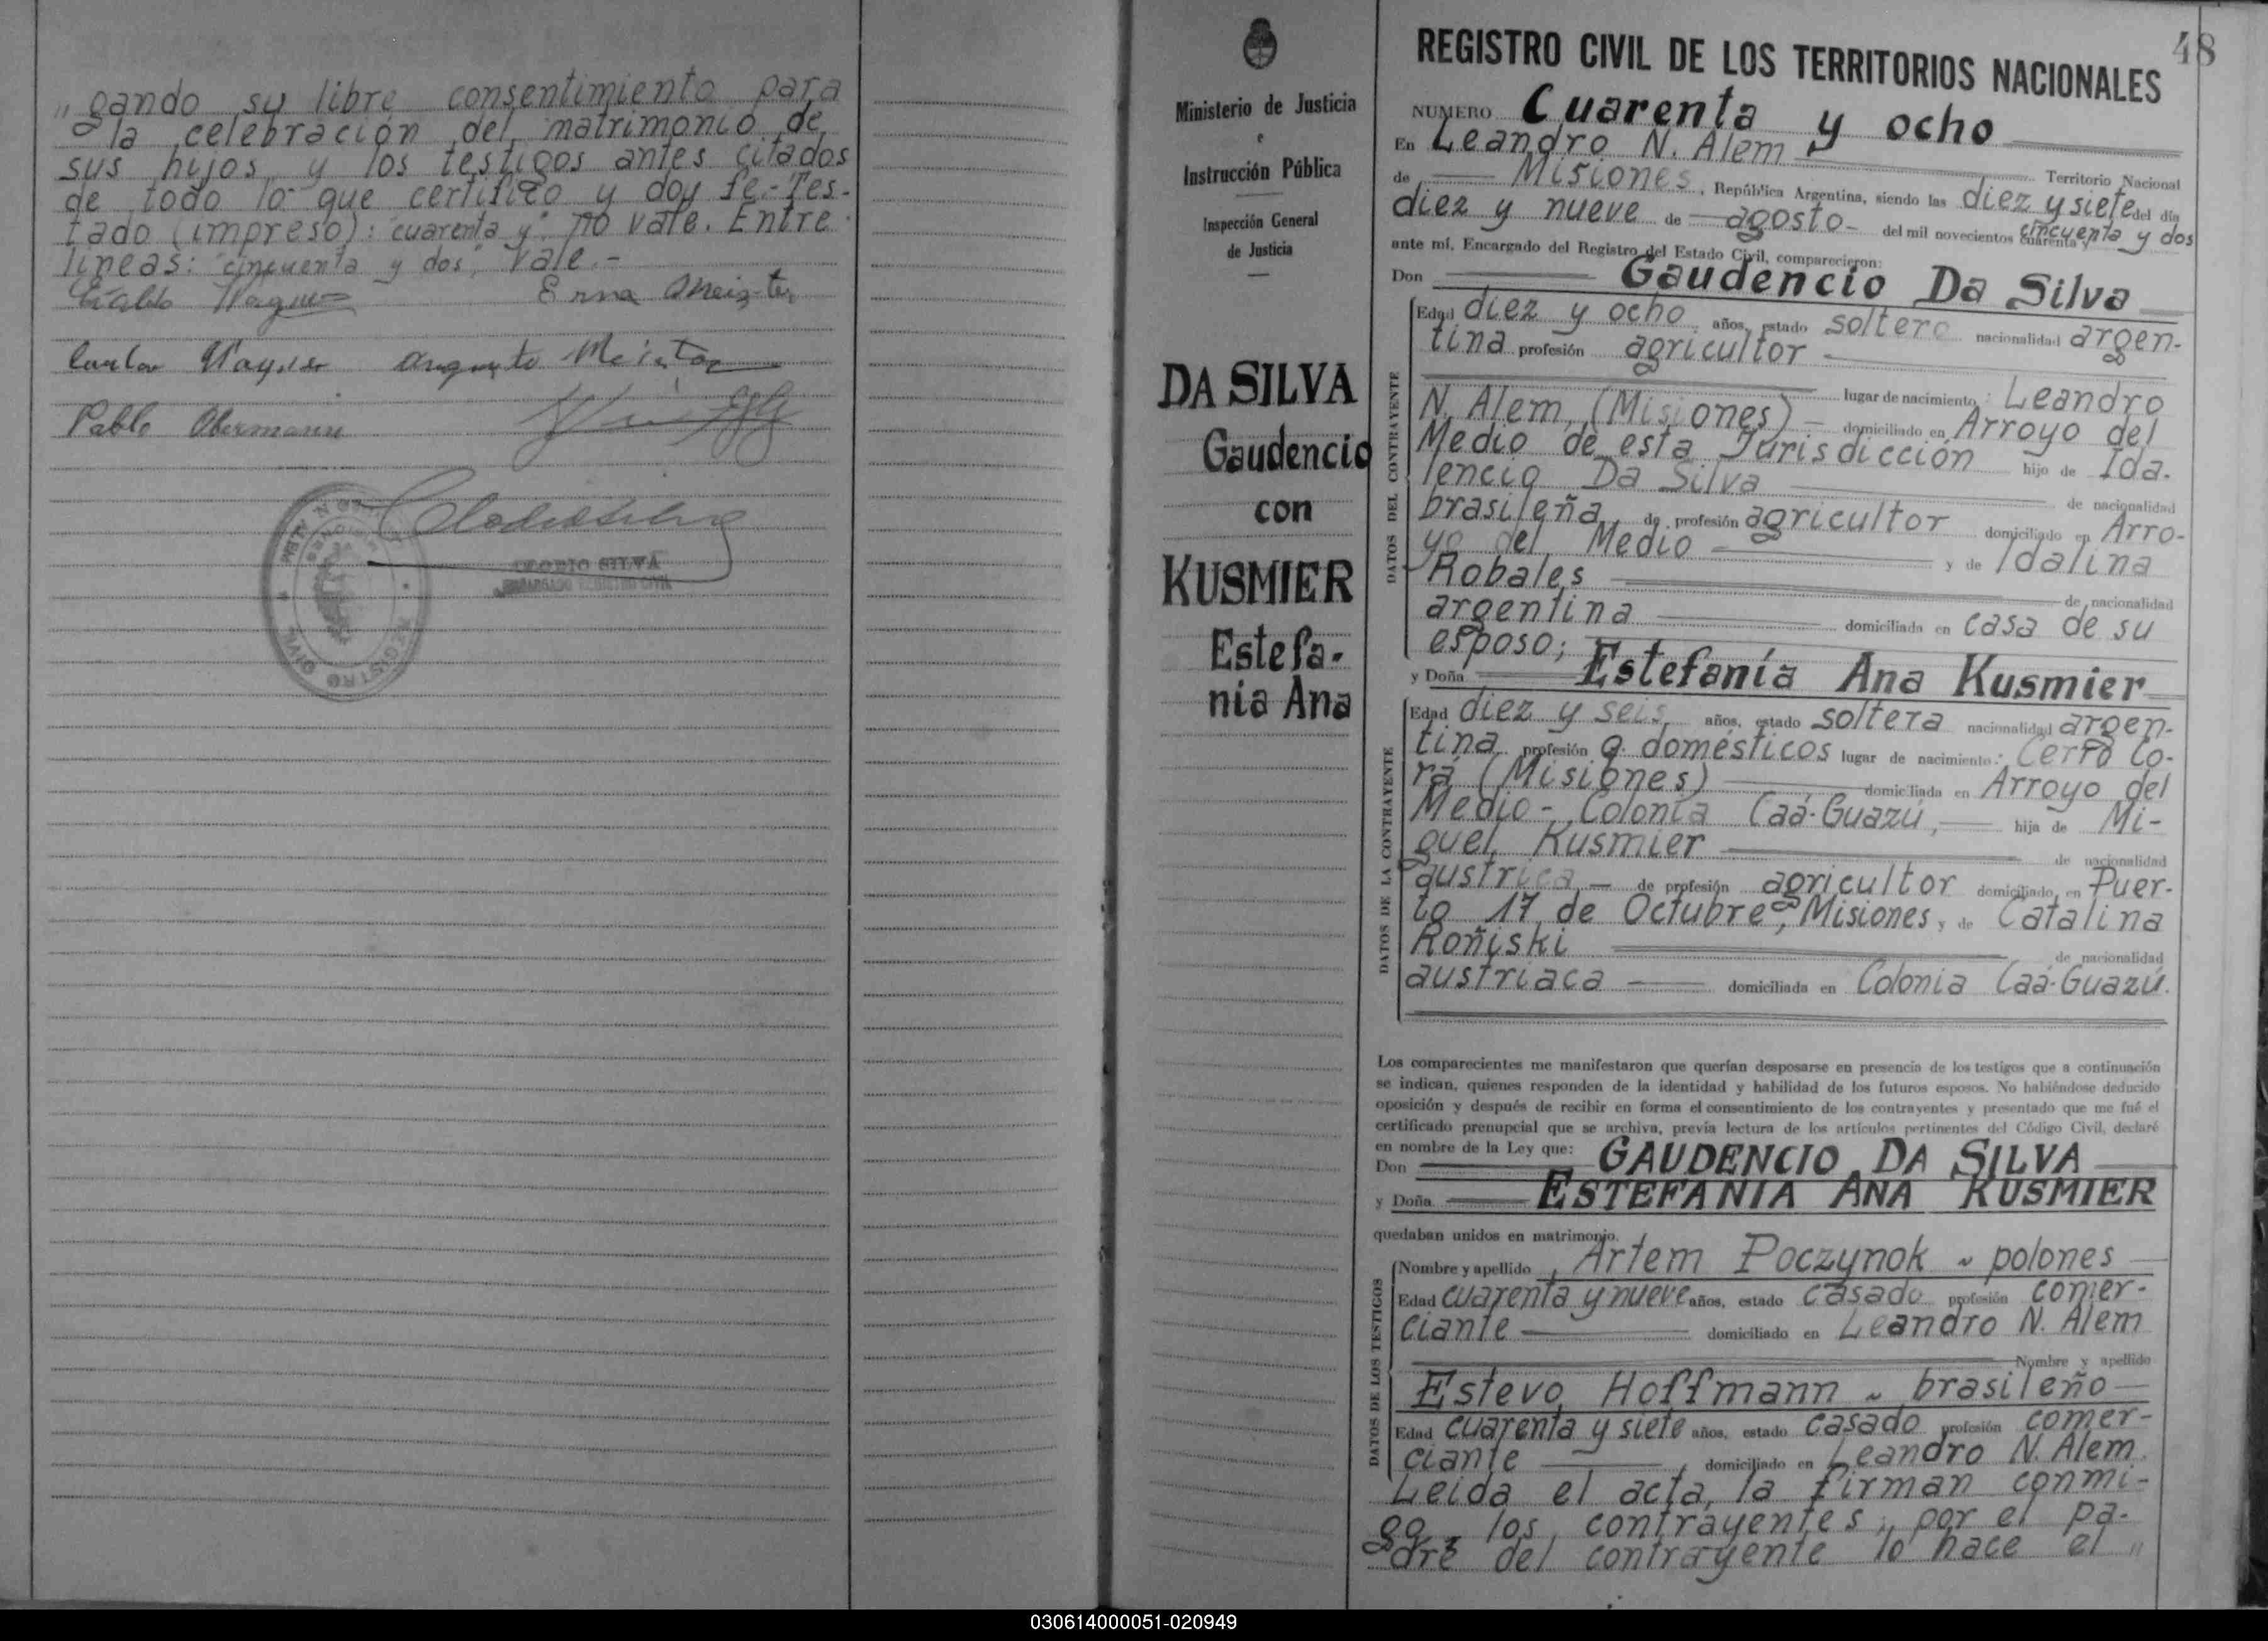 „gando su libre consentimiento para
la celebración del matrimonio de
sus hijos y los testigos antes citados
de todo lo que certifico y doy fe.- Tes-
tado (impreso): "cuarenta y" no vale. Entre
líneas: "cincuenta y dos", Vale.-
Erna Meister
Augusto Meister
Pablo Obermann
REGISTRO CIVIL
CLODIO SILVA
ENCARGADO REGISTRO CIVIL
Ministerio de Justicia
e
Instrucción Pública
Inspección General
de Justicia
DA SILVA
Gaudencio
con
KUSMIER
Estefa-
nia Ana
48
REGISTRO CIVIL DE LOS TERRITORIOS NACIONALES
NUMERO Cuarenta y ocho
En Leandro N. Alem Territorio Nacional
de Misiones, República Argentina, siendo las diez y siete del día
diez y nueve de agosto- del mil novecientos cuarenta y cincuenta y dos
ante mí, Encargado del Registro del Estado Civil, comparecieron:
Don Gaudencio Da Silva
DATOS DEL CONTRAYENTE
Edad diez y ocho años, estado soltero nacionalidad argen-
tina profesión agricultor
lugar de nacimiento: Leandro
N. Alem, (Misiones) domiciliado en Arroyo del
Medio de esta Jurisdicción hijo de Ida-
lencio Da Silva de nacionalidad
brasileña de profesión agricultor domiciliado en Arro-
yo del Medio y de Idalina
Robales de nacionalidad
argentina domiciliada en casa de su
esposo;
y Doña Estefanía Ana Kusmier
DATOS DE LA CONTRAYENTE
Edad diez y seis años, estado soltera nacionalidad argen-
tina profesión q. domésticos lugar de nacimiento: Cerro Co-
rá (Misiones) domiciliada en Arroyo del
Medio - Colonia Caá-Guazú, hija de Mi-
guel Kusmier de nacionalidad
austrica de profesión agricultor domiciliado en Puer-
to 17 de Octubre, Misiones y de Catalina
Roñiski de nacionalidad
austriaca domiciliada en Colonia Caá-Guazú.
Los comparecientes me manifestaron que querían desposarse en presencia de los testigos que a continuación
se indican, quienes responden de la identidad y habilidad de los futuros esposos. No habiéndose deducido
oposición y después de recibir en forma el consentimiento de los contrayentes y presentado que me fué el
certificado prenupcial que se archiva, previa lectura de los artículos pertinentes del Código Civil, declaré
en nombre de la Ley que:
Don GAUDENCIO DA SILVA
y Doña ESTEFANIA ANA KUSMIER
quedaban unidos en matrimonio.
DATOS DE LOS TESTIGOS
Nombre y apellido Artem Poczynok ~ polones
Edad cuarenta y nueve años, estado casado profesión comer-
ciante domiciliado en Leandro N. Alem
Nombre y apellido
Estevo Hoffmann ~ brasileño
Edad cuarenta y siete años, estado casado profesión comer-
ciante, domiciliado en Leandro N. Alem.
Leida el acta, la firman conmi-
go, los contrayentes, por el pa-
dre del contrayente lo hace el „
030614000051-020949